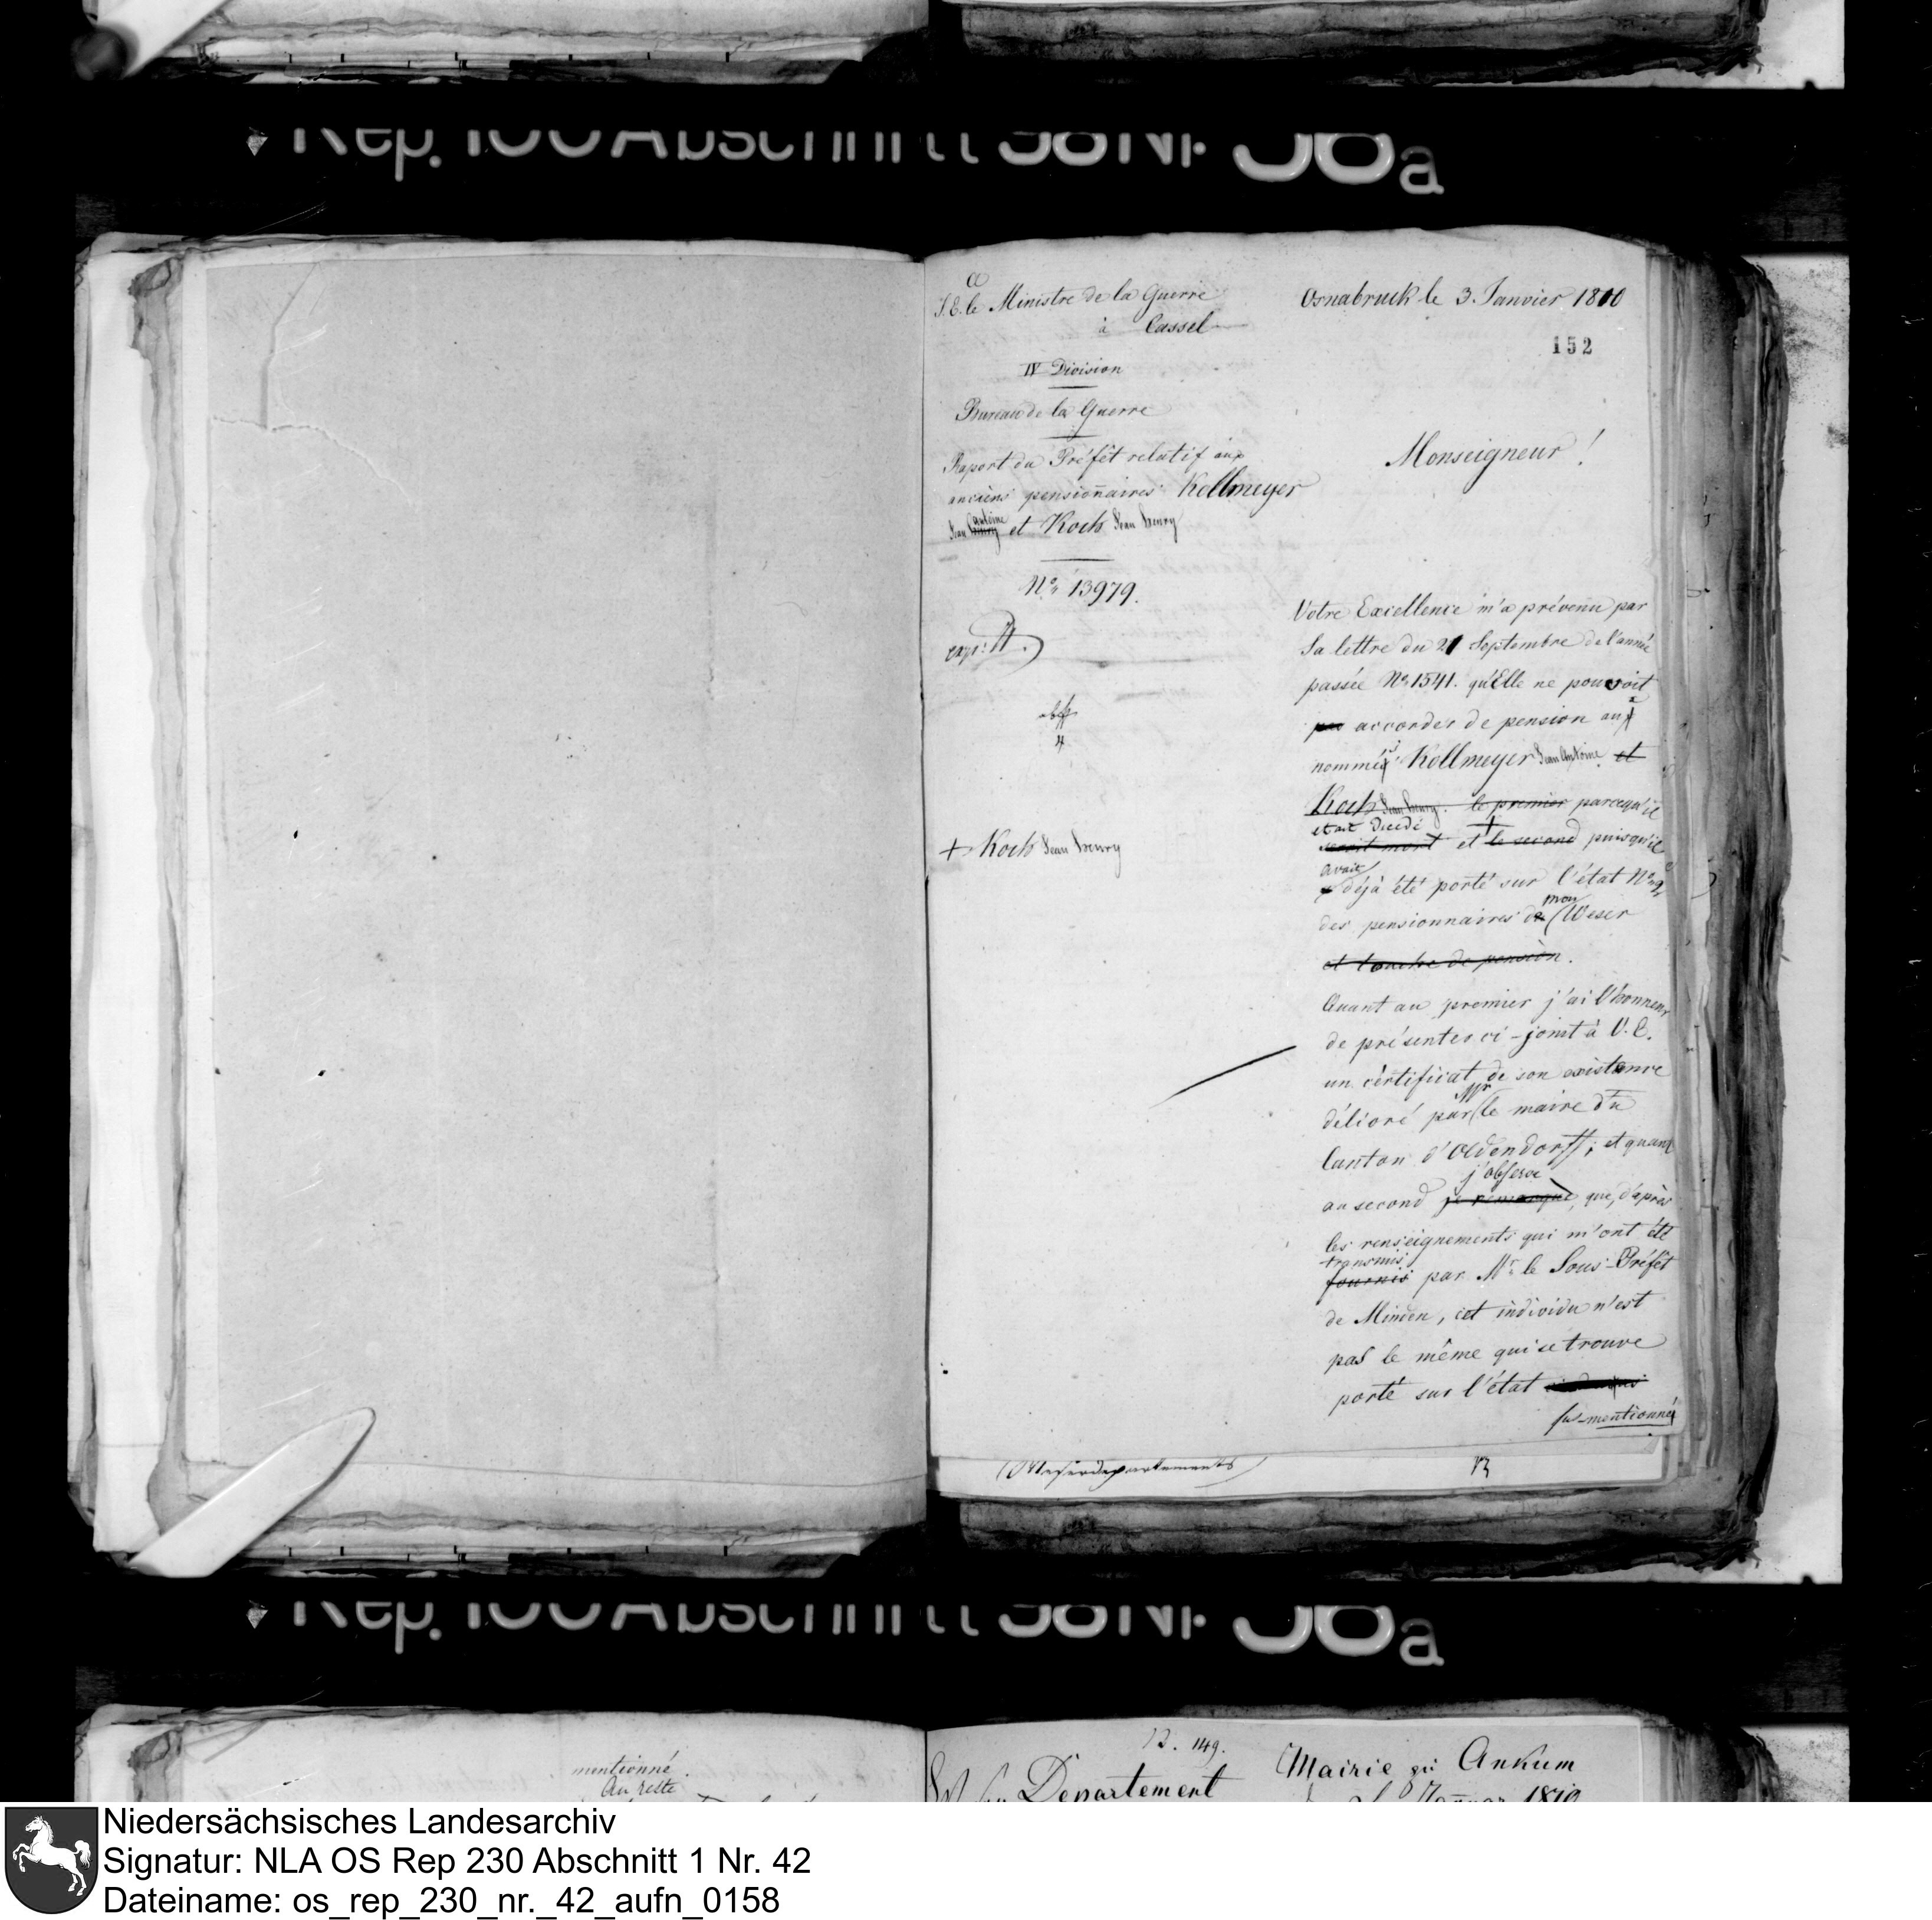 Rep. 100 Abschnitt 38 Nr. 36a
à
S. E. le Ministre de la Guerre
à Cassel
IV Division
Bureau de la Guerre
Raport du Préfêt relatif aux
anciens pensionnaires Kollmeyer
Jean henry antoine et Koch Jean henry
No. 13979.
exp: H.
abg
4
+ Koch Jean henry
Osnabruck le 3. Janvier 1810
152
Monseigneur!
Votre Excellence m'a prévenu par
Sa lettre du 21 Septembre de l'année
passée No. 1541. qu'Elle ne pouvoit
pas accorder de pension aux
nommés Kollmeyer Jean Antoine et
Koch Jean henry. le premier parcequ'il
etait decedé
seroit mort et le second + puisqu'il
avait
déjà été porté sur l'état No. 9,
des pensionnaires de mon Weser
et touche de pension.
Quant au premier j'ai l'honneur
de présenter ci-joint à V. E.
un certificat de son existence
délivré par Mr le maire du
Canton d'Oldendorff; et quant
j'observe
au second je remarque, que, d'après
les renseignements qui m'ont été
transmis
fournis par Mr. le Sous-Préfêt
de Minden, cet individu n'est
pas le même qui se trouve
porté sur l'état
sus-mentionné
Weserdepartements
Rep. 100 Abschnitt 38 Nr. 36a
mentionné.
Au reste
B. 149.
Departement
Mairie zu Ankum
1810
Niedersächsisches Landesarchiv
Signatur: NLA OS Rep 230 Abschnitt 1 Nr. 42
Dateiname: os_rep_230_nr._42_aufn_0158